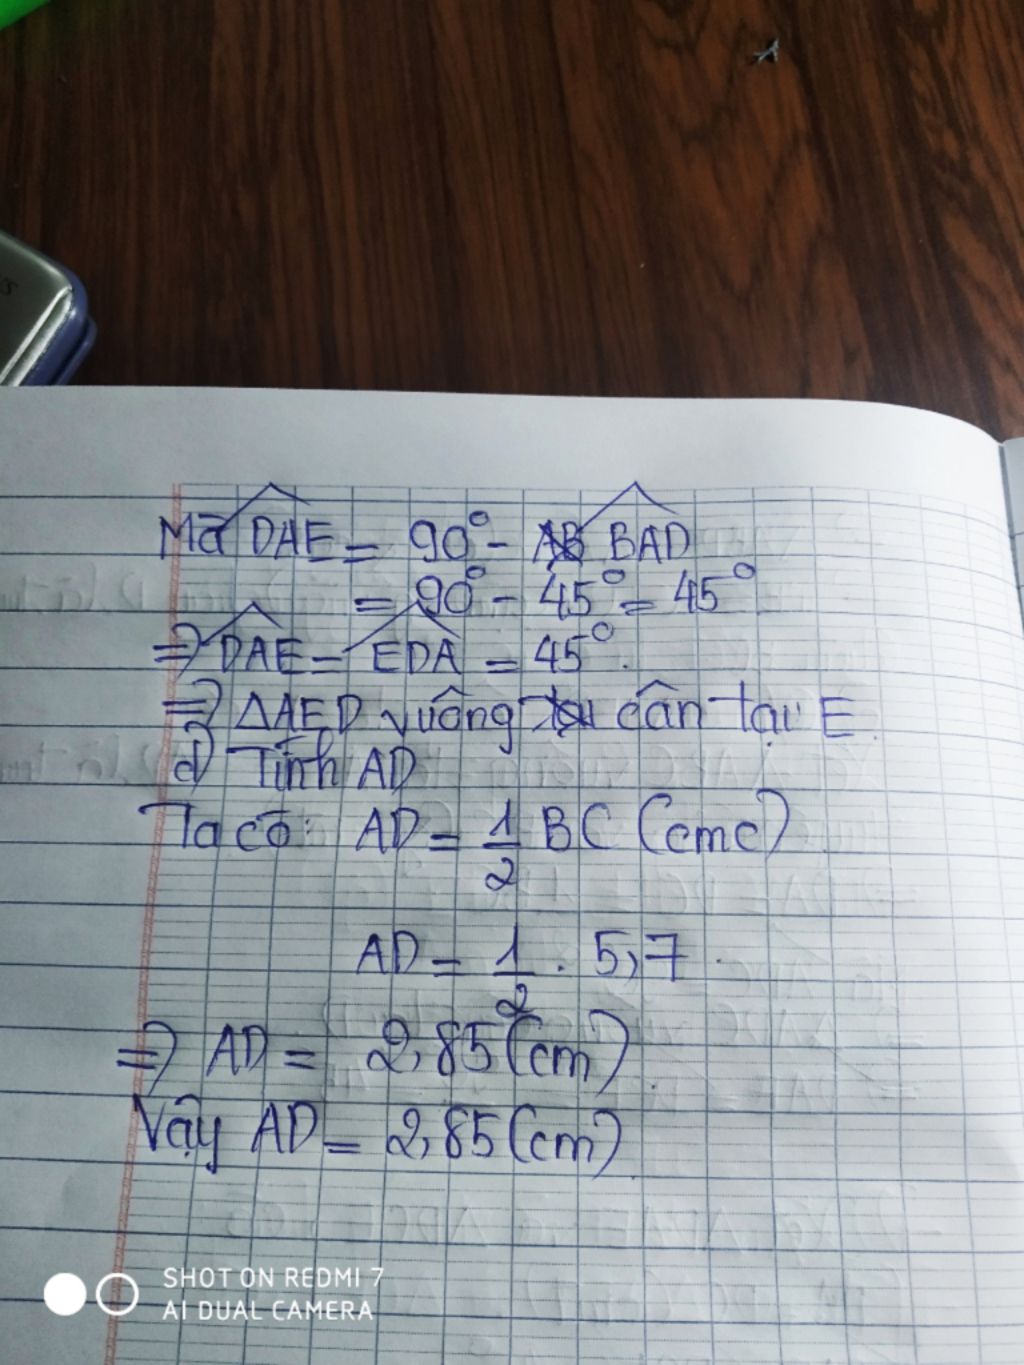 Mà DAE = 90° - BAD
= 90° - 45° = 45°
=> DAE = EDA = 45°.
=> ΔAED vuông cân tại E.
d) Tính AD
Ta có: AD = 1/2 BC (cmc)
AD = 1/2 . 5,7
=> AD = 2,85 (cm).
Vậy AD = 2,85 (cm)
SHOT ON REDMI 7
AI DUAL CAMERA